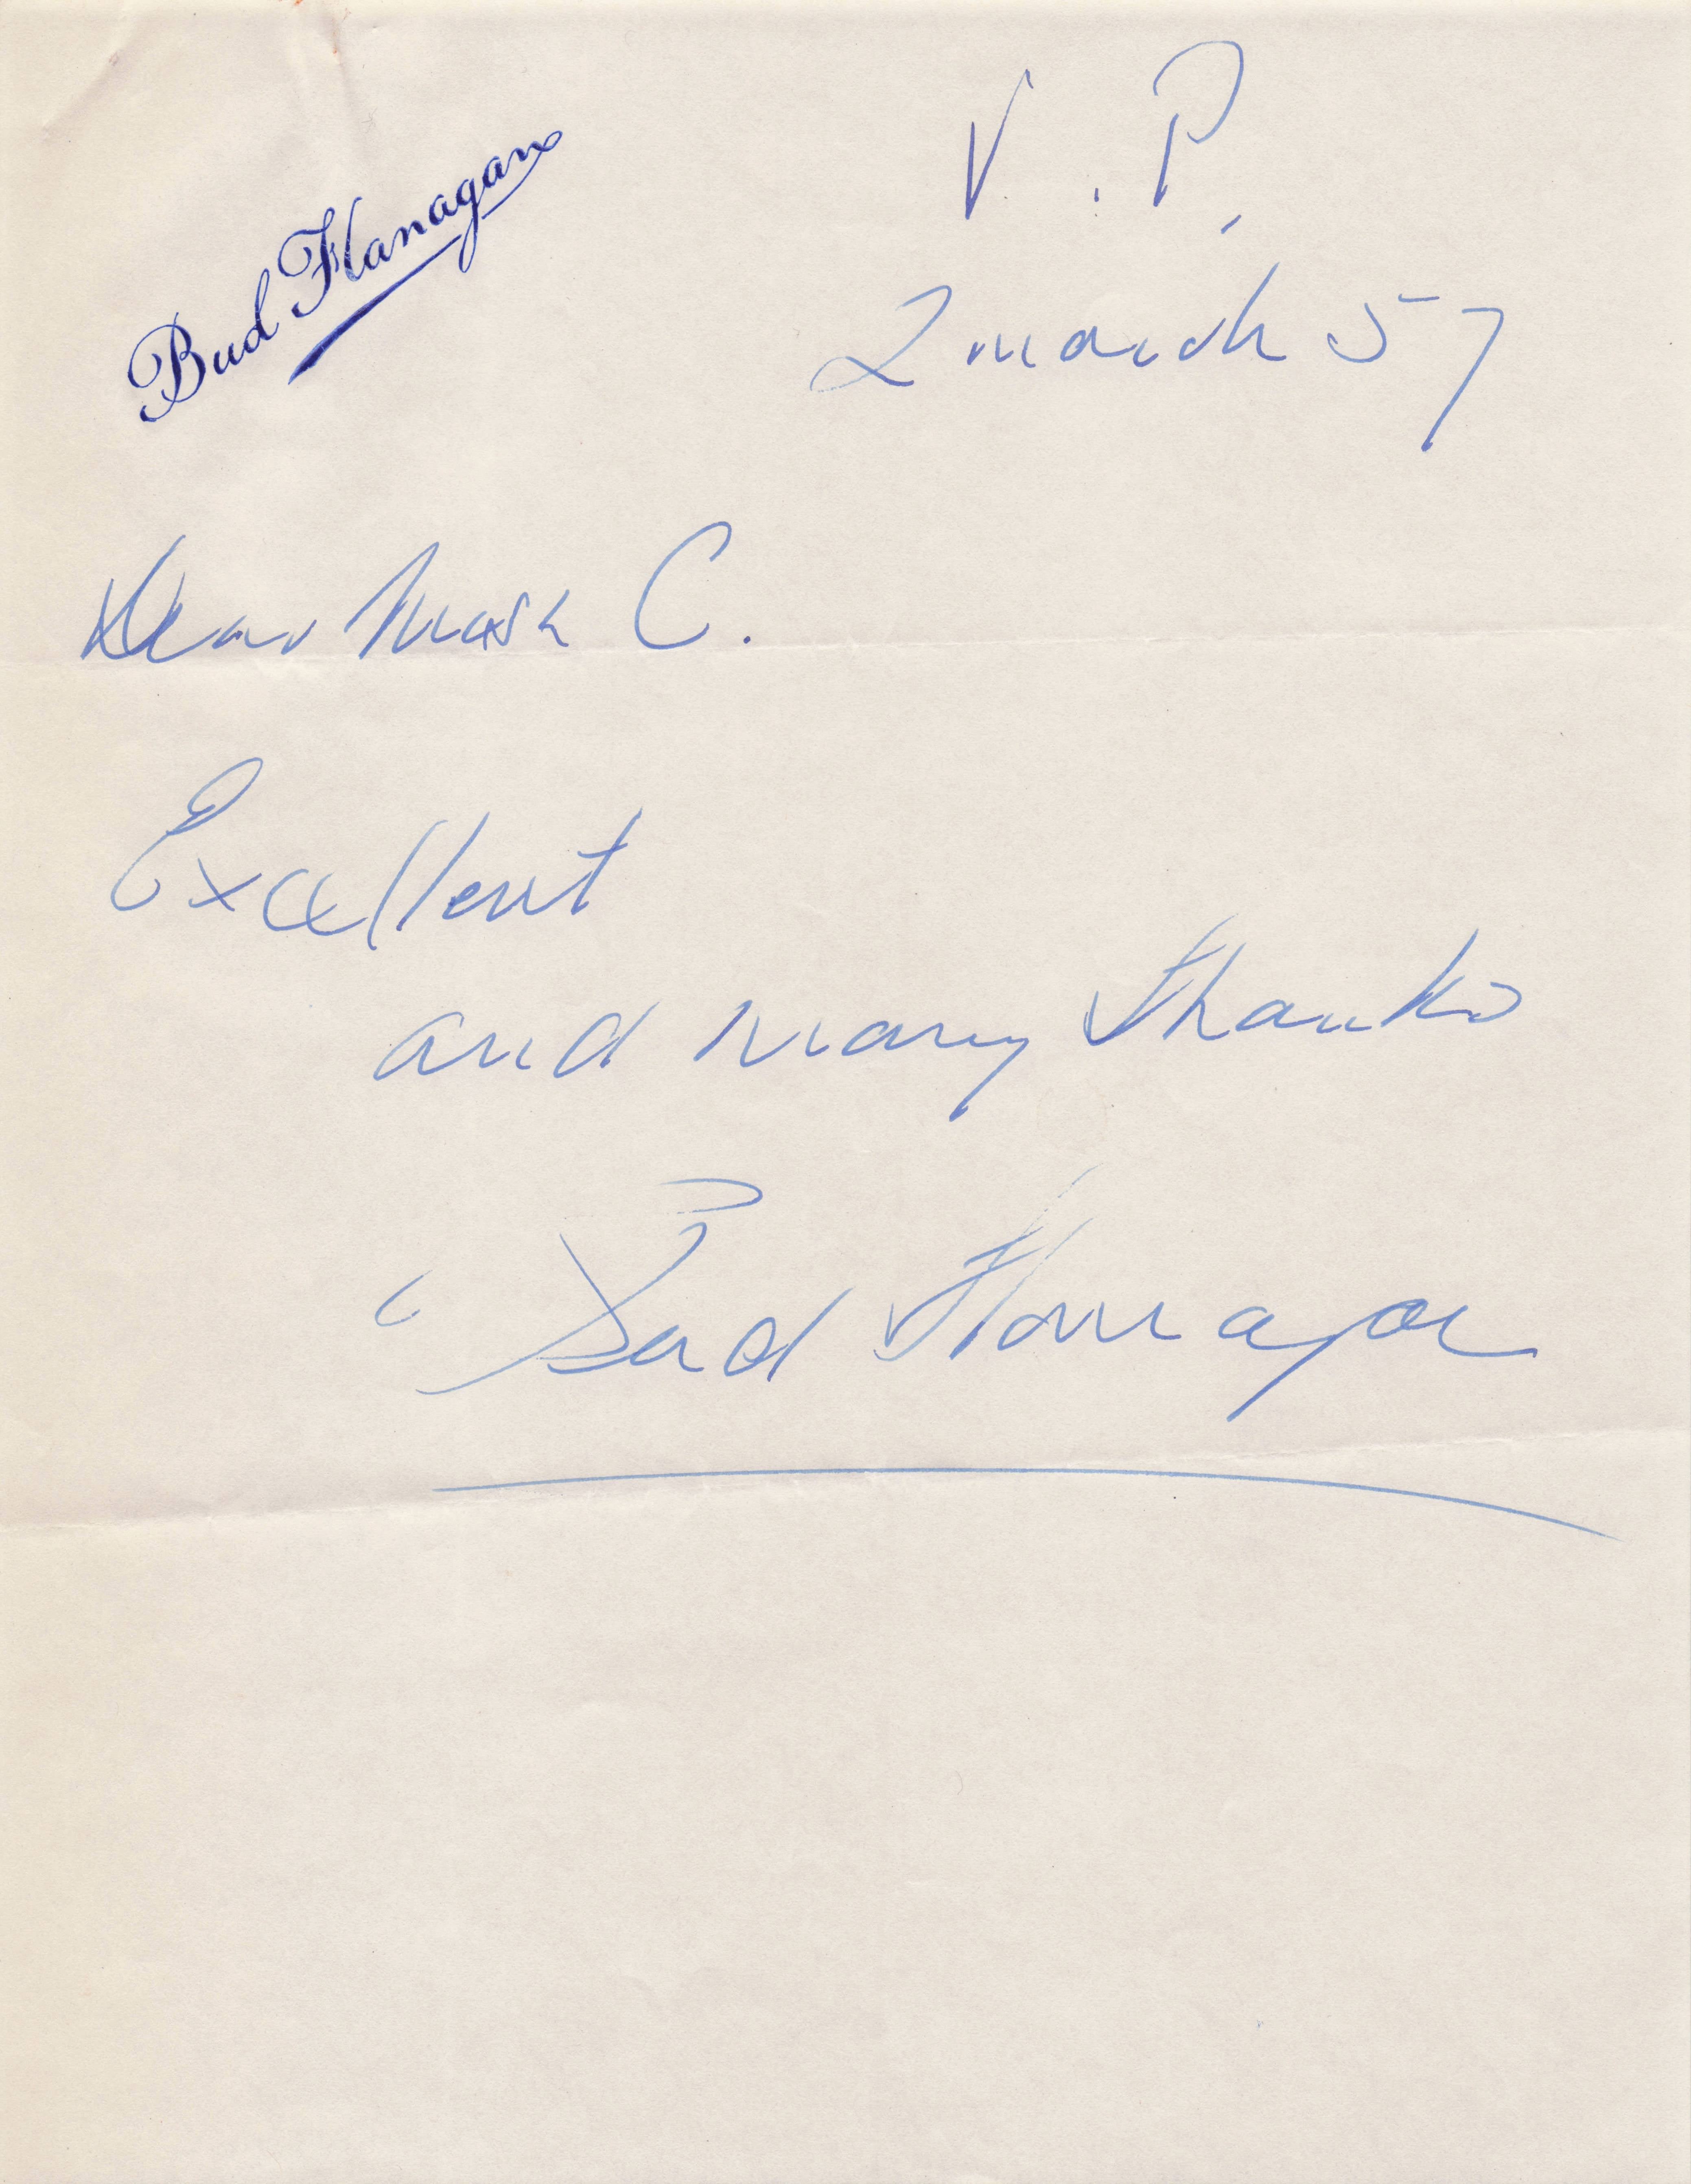 Bud Flanagan
V. P.
2 march 57
Dear Mark C.
Excellent
and many thanks
Bud Flanagan